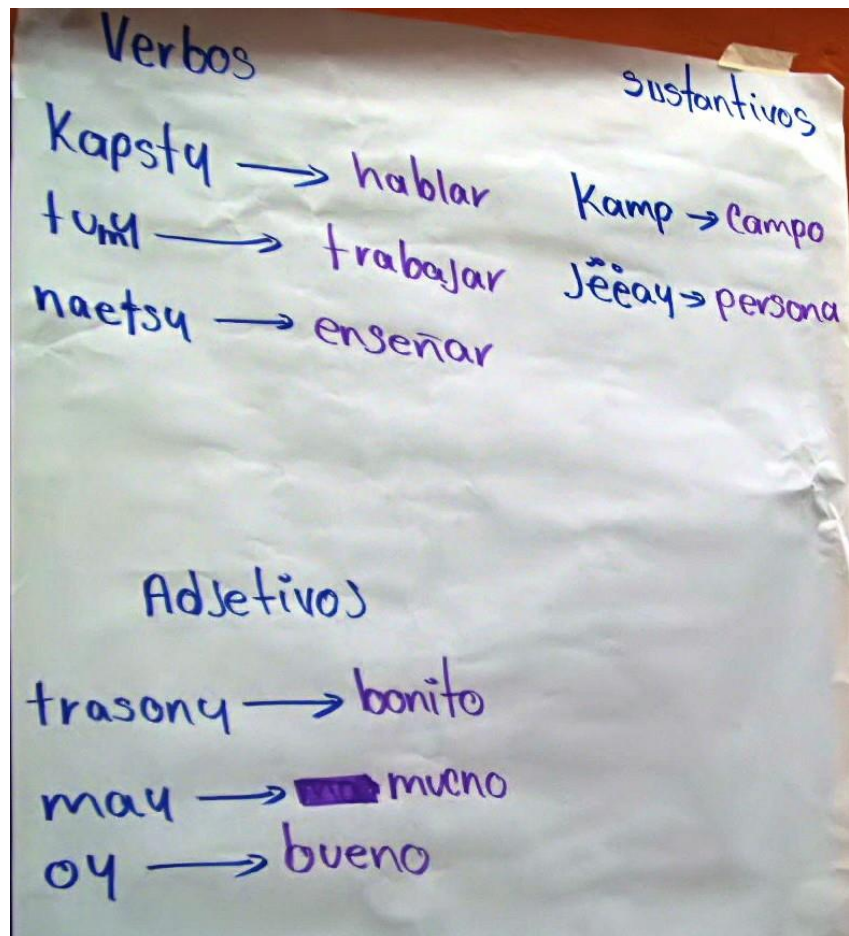 Verbos
Kapsty → hablar
tumy → trabajar
naetsy → enseñar
sustantivos
Kamp → Campo
Jëëay → persona
Adjetivos
trasony → bonito
may → mucho
oy → bueno